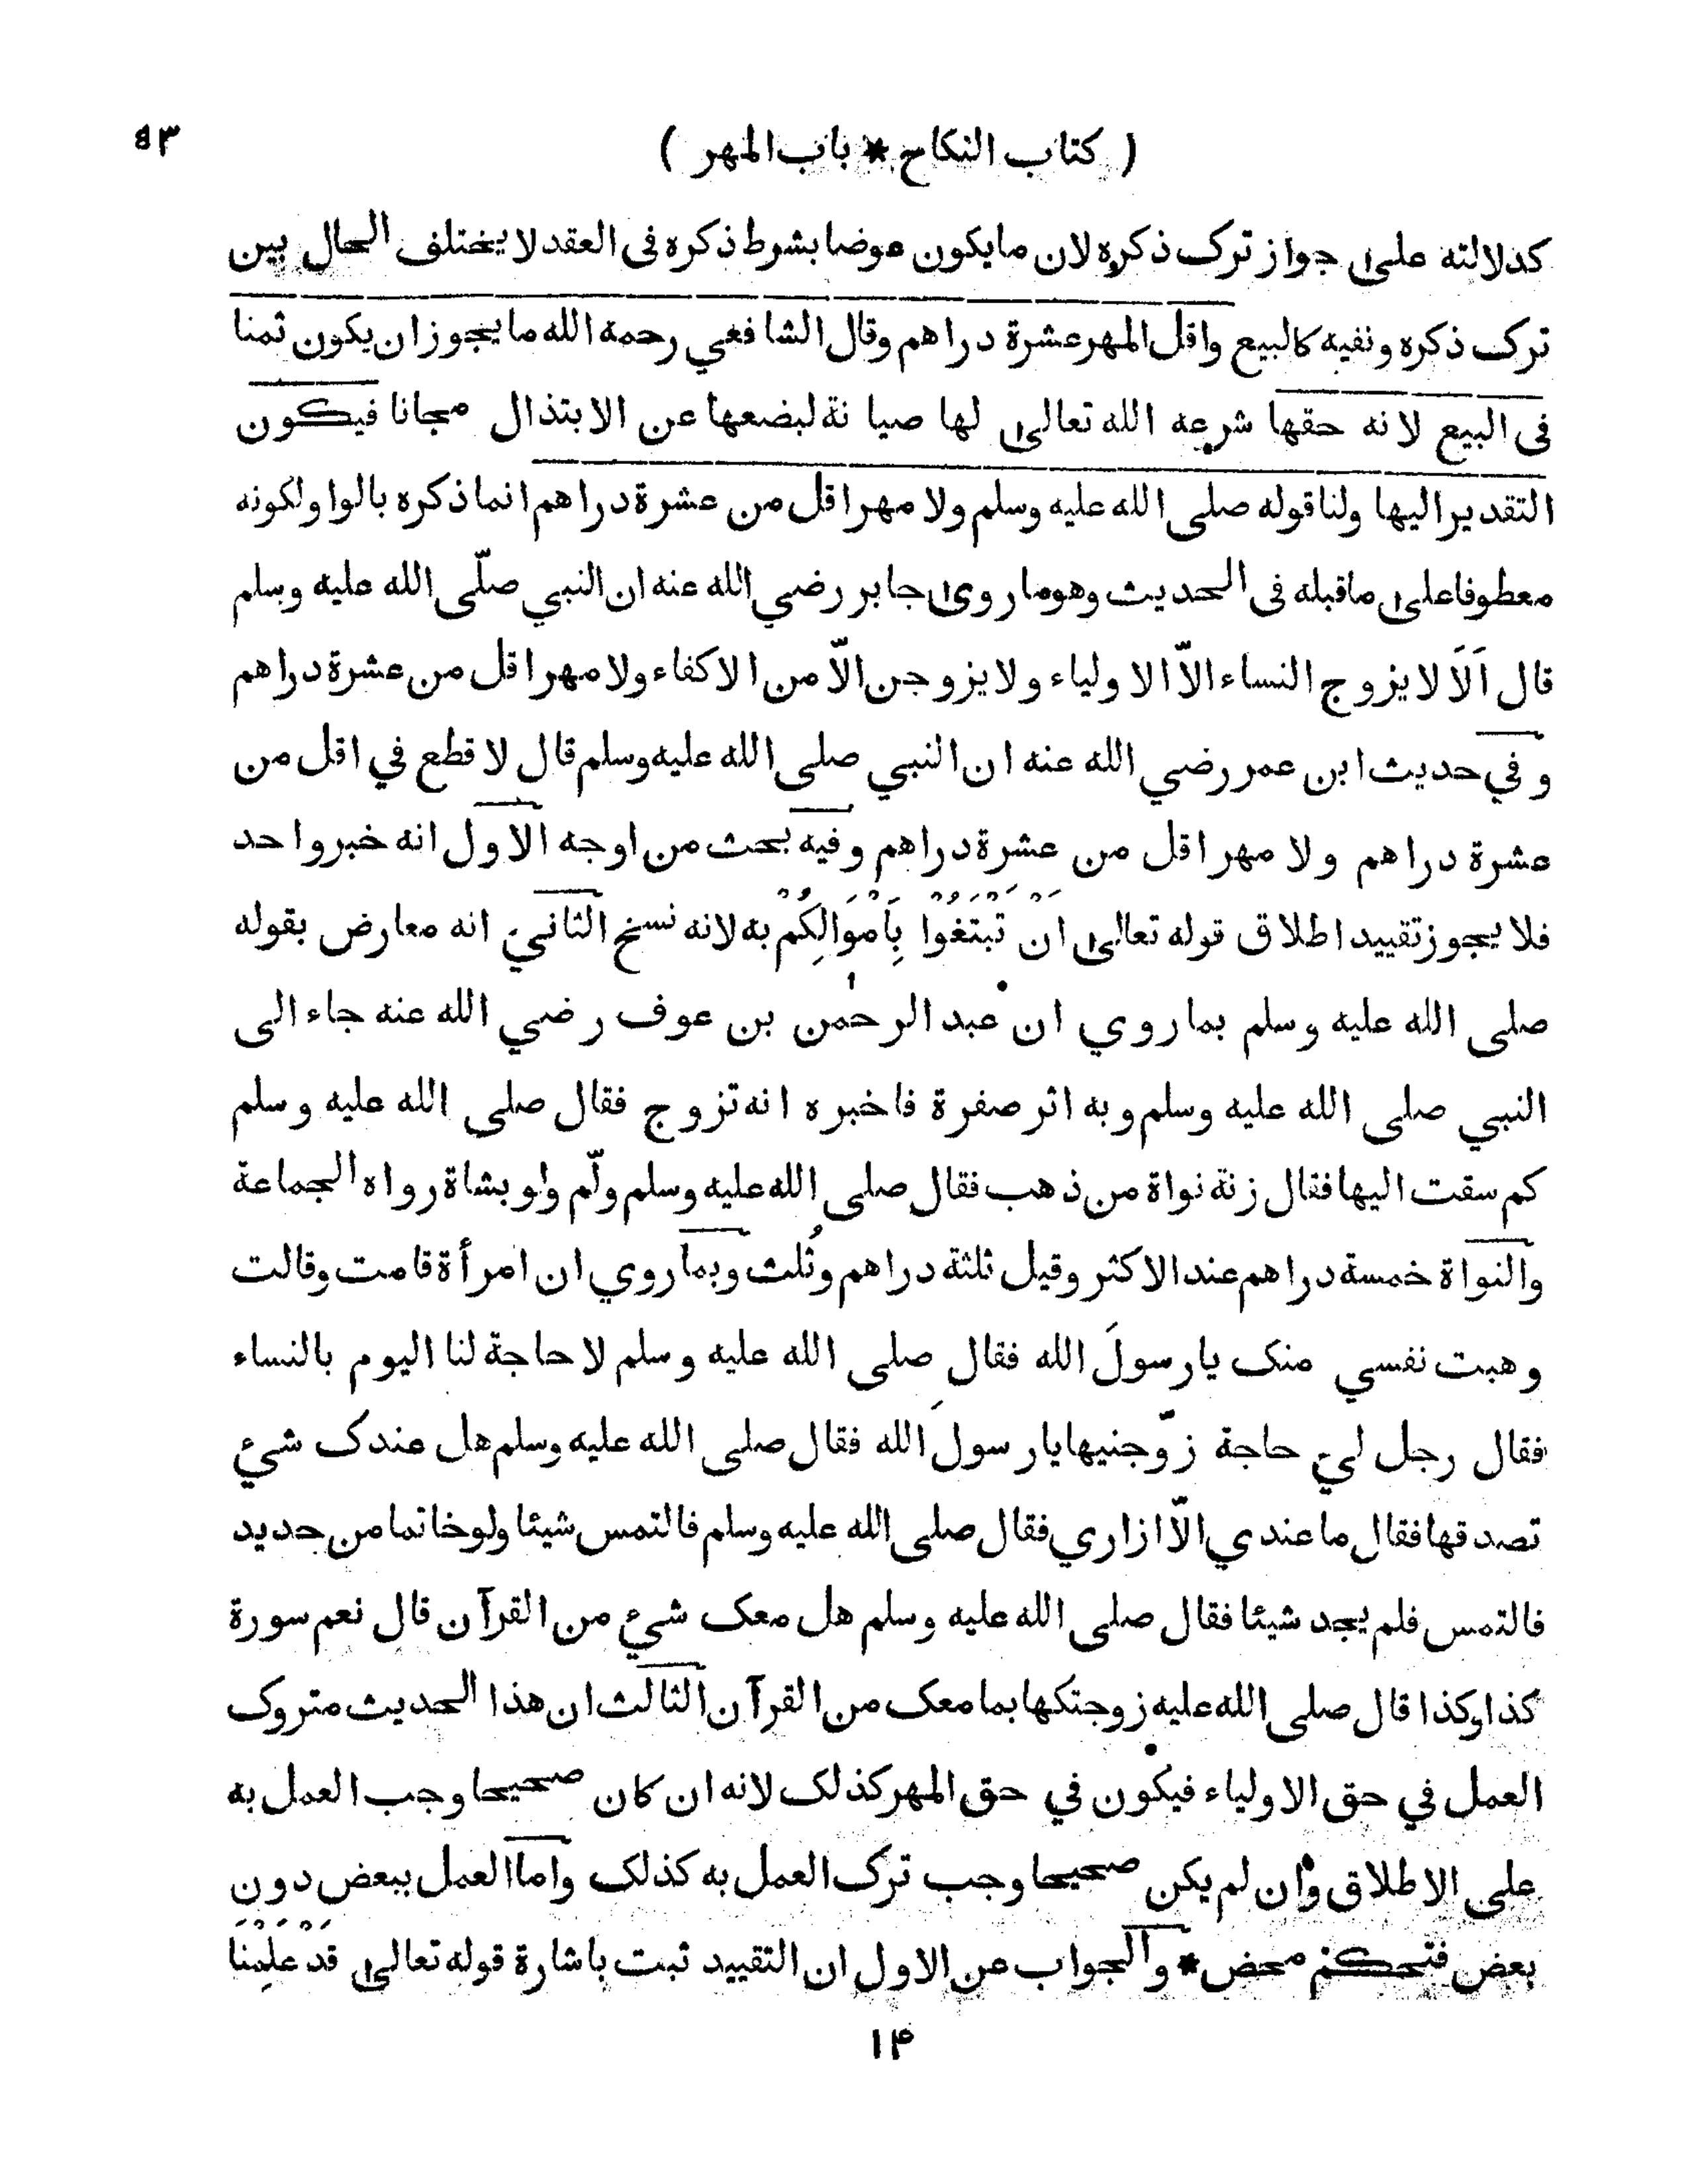 ( كتاب النكاح * باب المهر )
٥٣
كدلالته على جواز ترک ذكره لان مايكون عوضا بشرط ذكره فى العقد لا يختلف الحال بين
ترک ذكره ونفيه كالبيع واقل المهر عشرة دراهم وقال الشافعي رحمة الله ما يجوز ان يكون ثمنا
فى البيع لانه حقها شرعه الله تعالى لها صيانة لبضعها عن الابتذال مجانا فيكون
التقدير اليها ولنا قوله صلى الله عليه وسلم ولا مهر اقل من عشرة دراهم انما ذكره بالواو لكونه
معطوفا على ماقبله فى الحديث وهو ما روى جابر رضي الله عنه ان النبي صلّى الله عليه وسلم
قال اَلَا لا يزوج النساء الاّ الاولياء ولا يزوجن الاّ من الاكفاء ولا مهر اقل من عشرة دراهم
وفي حديث ابن عمر رضي الله عنه ان النبي صلى الله عليه وسلم قال لا قطع في اقل من
عشرة دراهم ولا مهر اقل من عشرة دراهم وفيه بحث من اوجه الاول انه خبر واحد
فلا يجوز تقييد اطلاق قوله تعالى اَنْ تَبْتَغُوْا بِاَمْوَالِكُمْ به لانه نسخ الثاني انه معارض بقوله
صلى الله عليه وسلم بما روي ان عبد الرحمٰن بن عوف رضي الله عنه جاء الى
النبي صلى الله عليه وسلم وبه اثر صفرة فاخبره انه تزوج فقال صلى الله عليه وسلم
كم سقت اليها فقال زنة نواة من ذهب فقال صلى الله عليه وسلم ولّم ولو بشاة رواه الجماعة
والنواة خمسة دراهم عند الاكثر وقيل ثلثة دراهم وثُلث وبما روي ان امرأة قامت وقالت
وهبت نفسي منک يا رسولَ الله فقال صلى الله عليه وسلم لا حاجة لنا اليوم بالنساء
فقال رجل لي حاجة زوّجنيها يا رسولَ الله فقال صلى الله عليه وسلم هل عندک شيء
تصدقها فقال ما عندي الاّ ازاري فقال صلى الله عليه وسلم فالتمس شيئا ولو خاتما من حديد
فالتمس فلم يجد شيئا فقال صلى الله عليه وسلم هل معک شيء من القرآن قال نعم سورة
كذا وكذا قال صلى الله عليه زوجتكها بما معک من القرآن الثالث ان هذا الحديث متروک
العمل في حق الاولياء فيكون في حق المهر كذلک لانه ان كان صحيحا وجب العمل به
على الاطلاق وان لم يكن صحيحا وجب ترک العمل به كذلک واما العمل ببعض دون
بعض فتحكم محض * والجواب عن الاول ان التقييد ثبت باشارة قوله تعالى قَدْ عَلِمْنَا
١۴